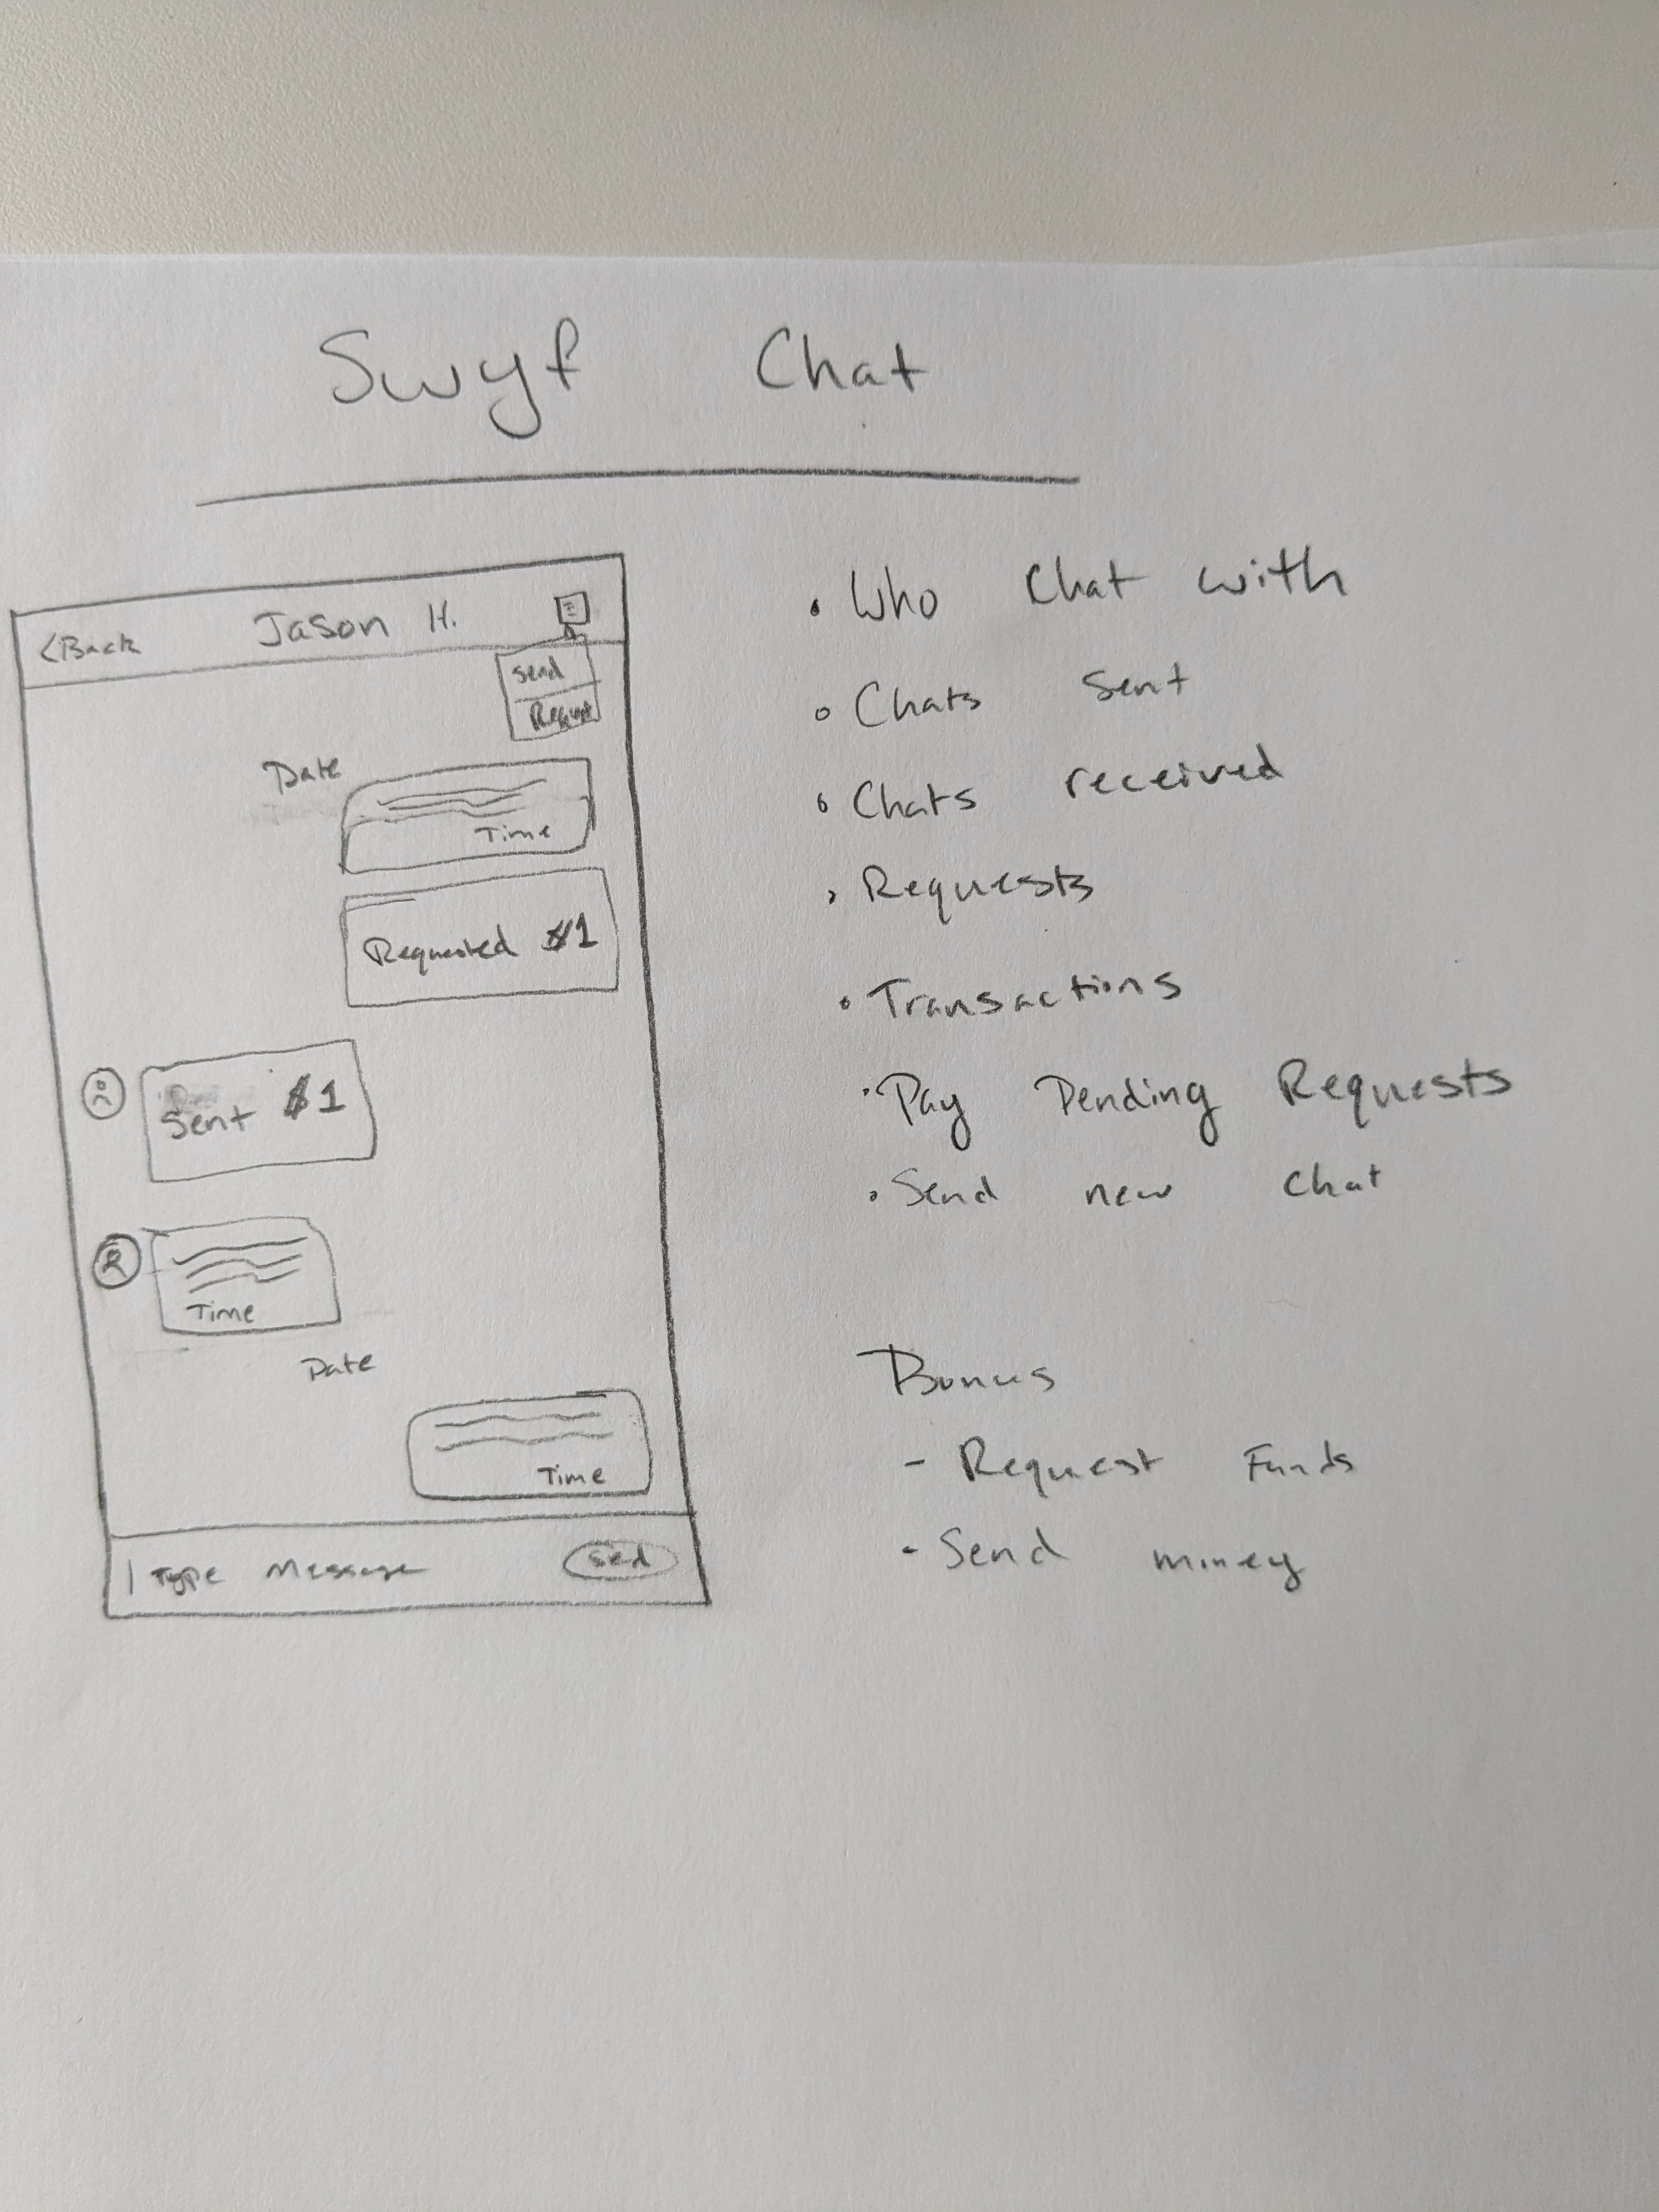 Swyf Chat
<Back Jason H.
Send
Request
Date
Time
Requested $1
Sent $1
Time
Date
Time
Type Message Send
• Who Chat with
• Chats Sent
• Chats received
• Requests
• Transactions
• Pay Pending Requests
• Send new chat
Bonus
- Request Funds
- Send money